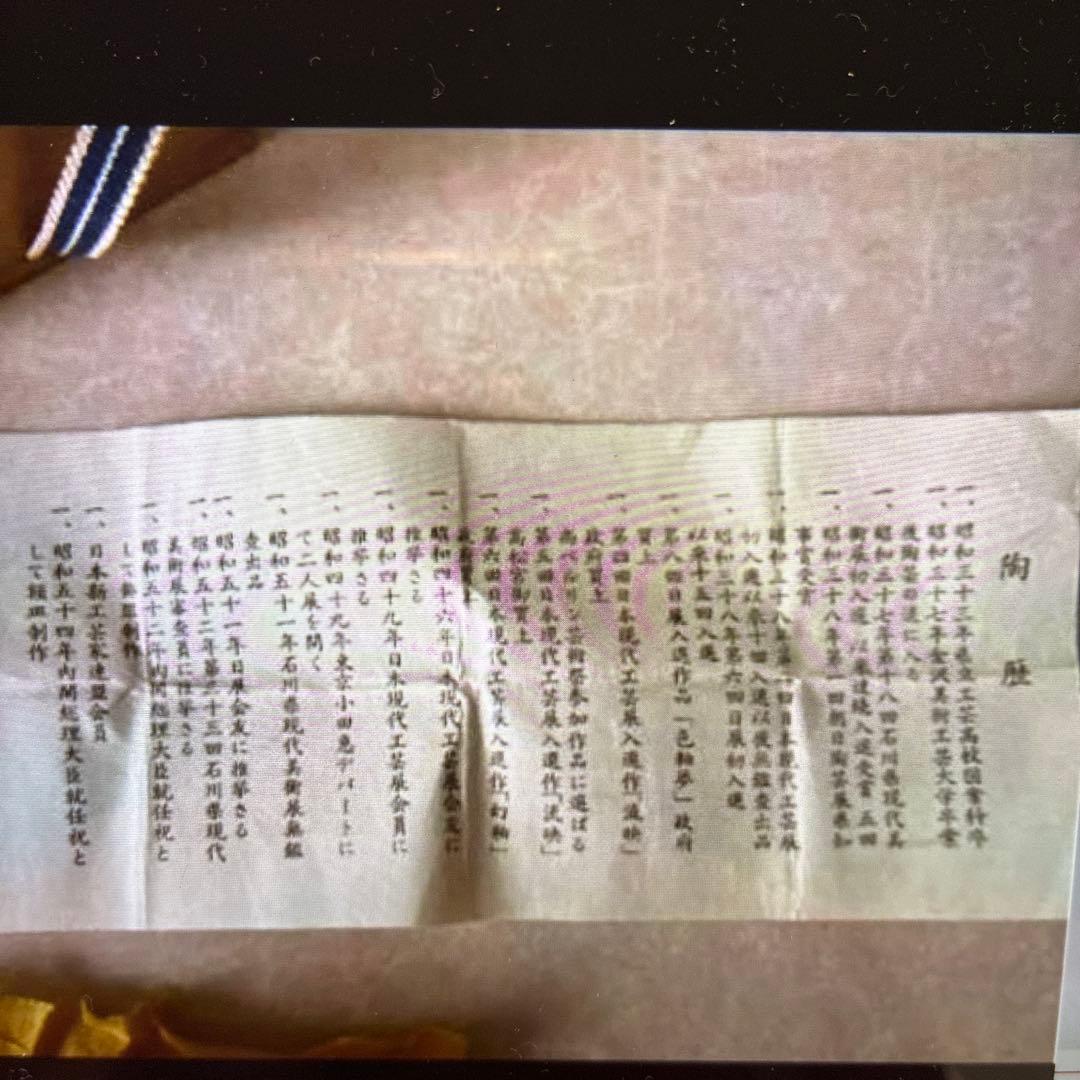 陶歴
一、昭和三十三年県立工芸高校図案科卒
一、昭和三十七年金沢美術工芸大学卒業
後陶芸の道に入る
一、昭和三十七年第十八回石川県現代美
術展初入選以来連続入選受賞五回
一、昭和三十八年第一回朝日陶芸展県知
事賞受賞
一、昭和三十八年第 回日本現代工芸展
初入選以来十回入選以後無鑑査出品
一、昭和三十八年第六回日展初入選
以来十五回入選
一、第八回日展入選作品「色釉夢」政府
買上
一、第四回日本現代工芸展入選作「流映」
政府買上
尚ベルリン芸術祭参加作品に選ばる
一、第五回日本現代工芸展入選作「流映」
高松宮御買上
一、第六回日本現代工芸展入選作「幻釉」
一、昭和四十六年日本現代工芸展会友に
推挙さる
一、昭和四十九年日本現代工芸展会員に
推挙さる
一、昭和四十九年東京小田急デパートに
て二人展を開く
一、昭和五十一年石川県現代美術展無鑑
査出品
一、昭和五十一年日展会友に推挙さる
一、昭和五十二年第三十三回石川県現代
美術展審査員に推挙さる
一、昭和五十二年内閣総理大臣就任祝と
して 制作
一、日本新工芸家連盟会員
一、昭和五十四年内閣総理大臣就任祝と
して額皿制作